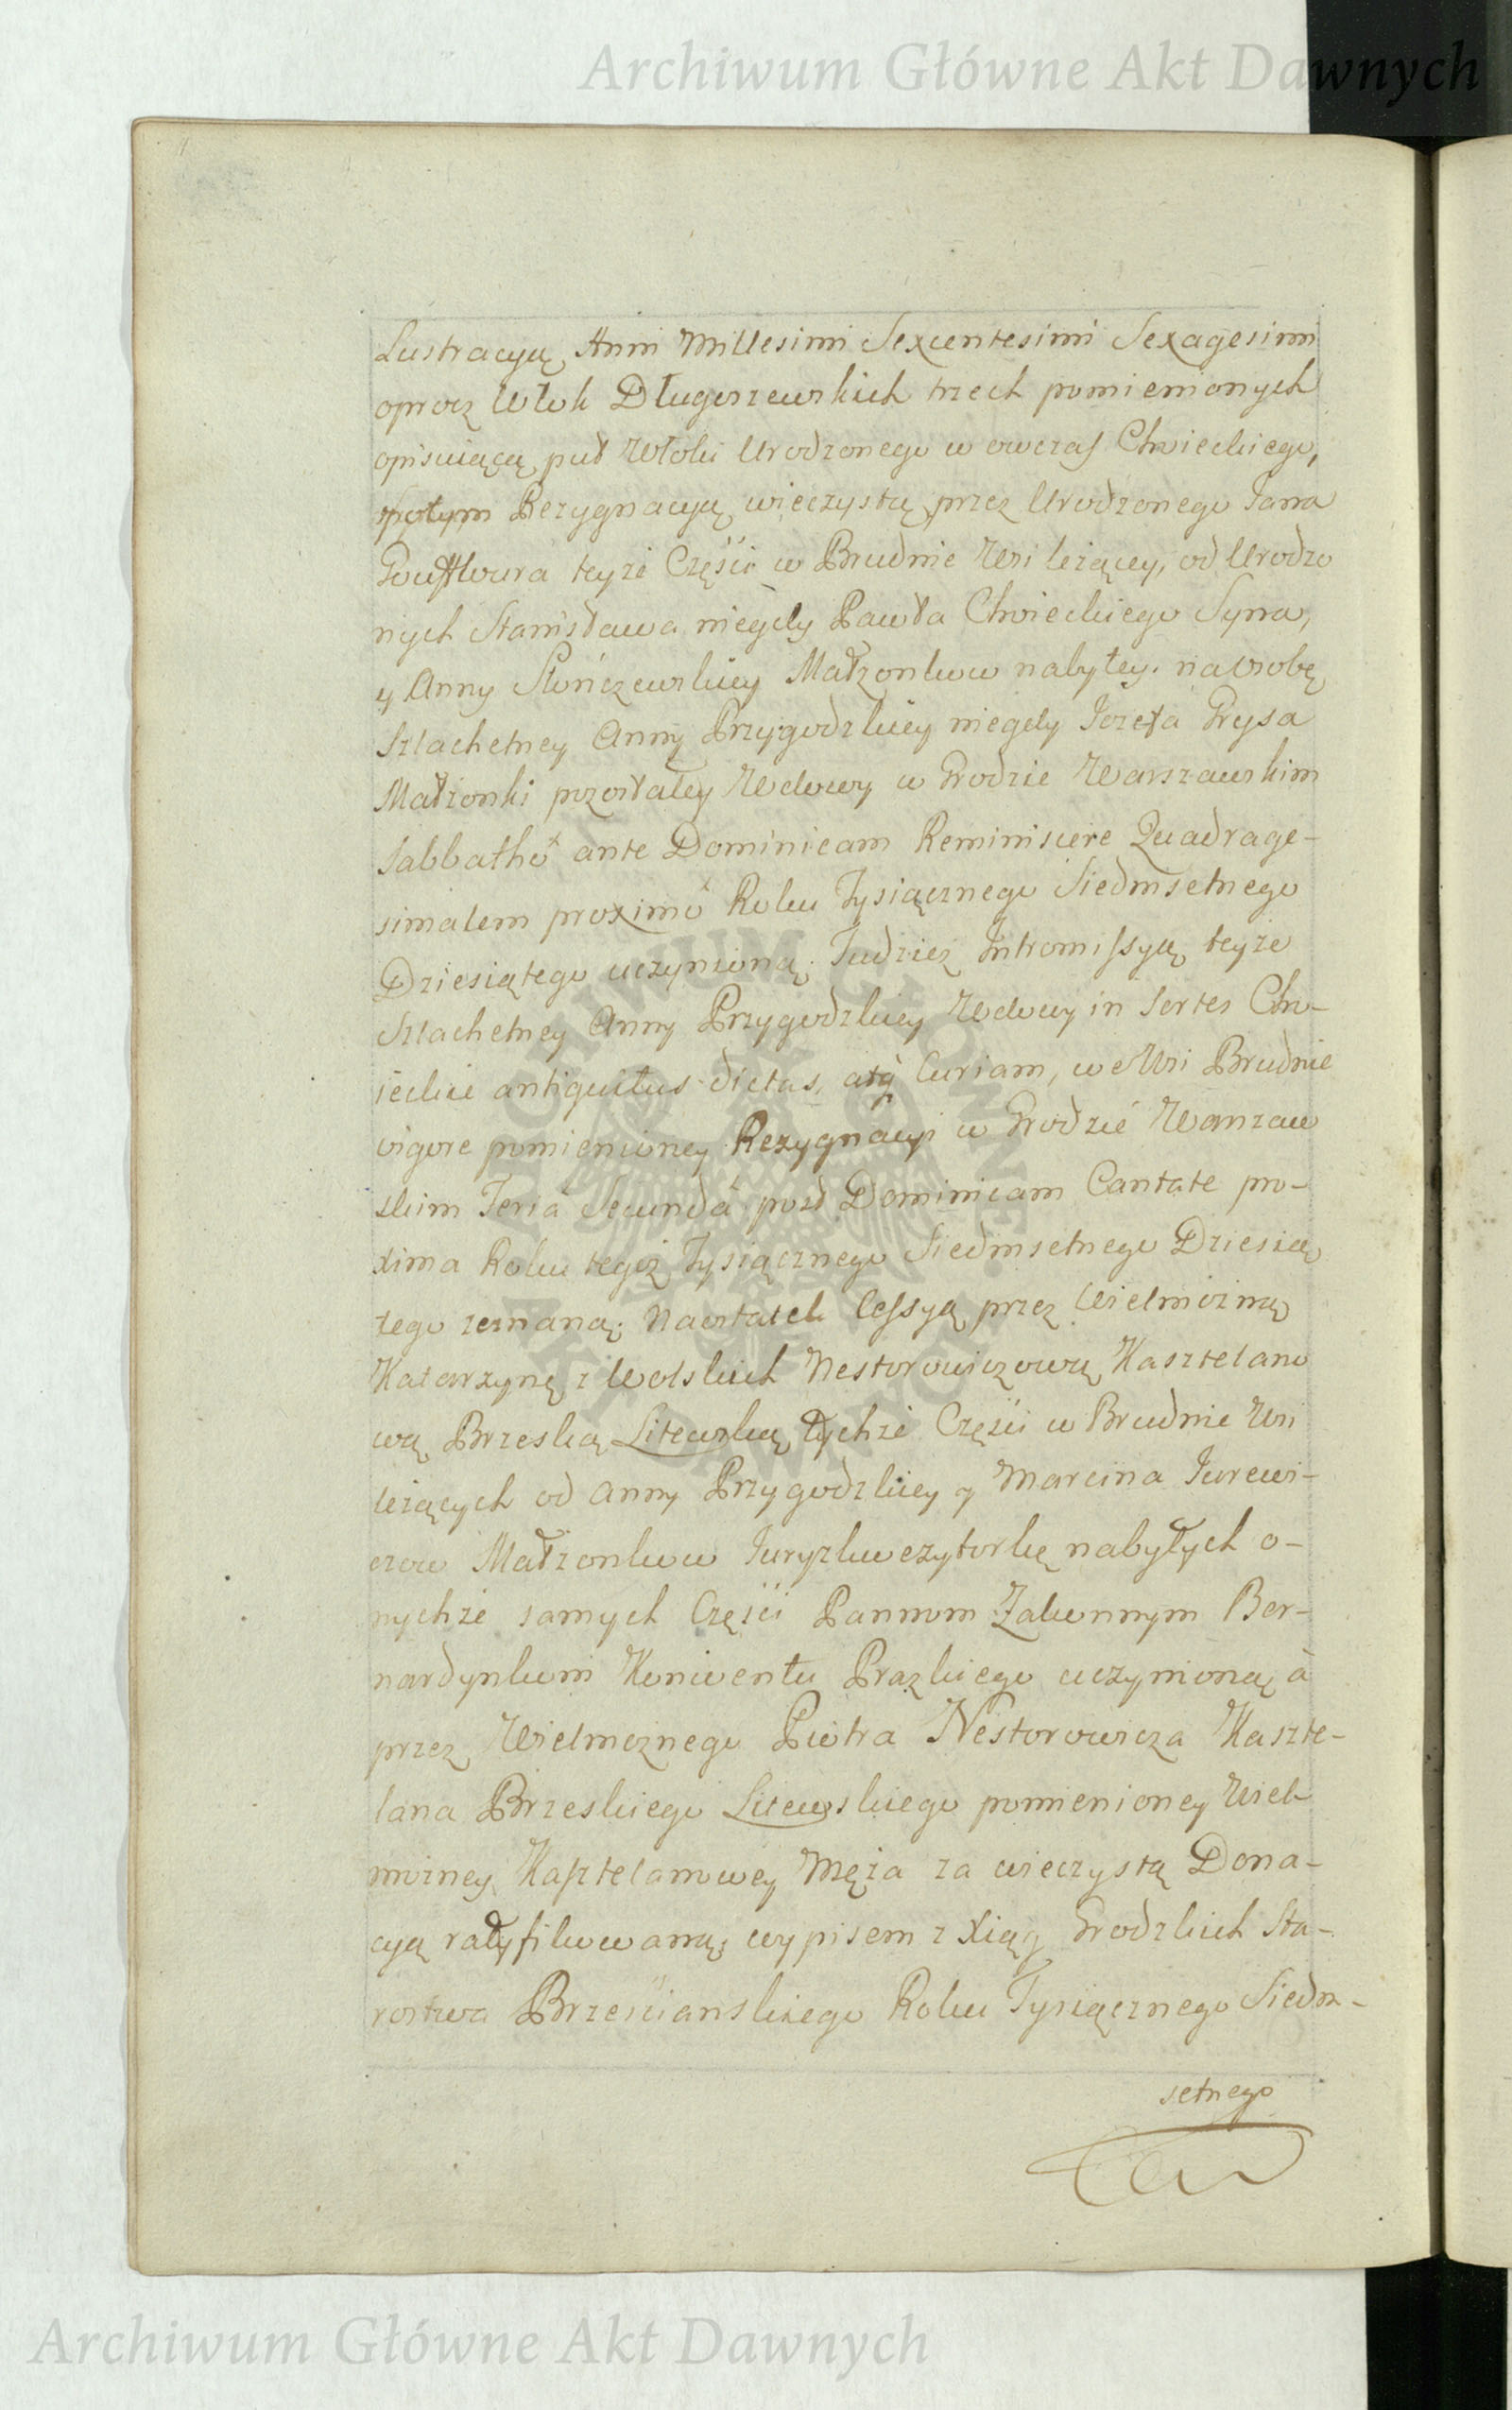 Archiwum Główne Akt Dawnych
Lustracyą Anni Millesimi Sexcentesimi Sexagesimi
oprocz Włok Długoszewskich trzech pomienionych
opisuiącą puł Włoki Urodzonego w owczas Chwieckiego,
potym Rezygnacyą wieczystą przez Urodzonego Jana
teyże Części w Brudnie Wsi leżącey, od Urodzo
nych Stanisława niegdy Pawła Chwieckiego Syna,
y Anny Słończewskiey Małzonkow nabytey. na osobę
Szlachetney Anny Przygodzkiey niegdy Jozefa Grysa
Małzonki pozostałey Wdowy w Grodzie Warszawskim
Sabbathô ante Dominicam Reminiscere Quadrage-
simalem proximô Roku Tysiącznego Siedmsetnego
Dziesiątego uczynioną. Tudziez Intromissyą teyże
Szlachetney Anny Przygodzkiey Wdowy in Sortes Chw-
ieckie antiquitus dictas, atq́ Curiam, we Wsi Brudnie
vigore pomienioney Rezygnacyi w Grodzie Warszaw
skim Feriâ Secundâ post Dominicam Cantate pro-
xima Roku tegoż Tysiącznego Siedmsetnego Dziesią
tego zeznaną. Naostatek Cessyą przez Wielmożną
Katarzynę z Wolskich Nestorowiczową Kasztelano
wą Brzeską Litewską tychże Części w Brudnie Wsi
leżących od Anny Przygodzkiey y Marcina Jurewi-
czow Małzonkow Juryzkwezytorkę nabytych o-
nychże samych Części Pannom Zakonnym Ber-
nardynkom Konwentu Prazkiego uczynioną à
przez Wielmoznego Piotra Nestorowicza Kaszte-
lana Brzeskiego Litewskiego pomienioney Wiel
możney Kasztelanowey Męża za wieczystą Dona-
cyą ratyfikowaną; wypisem z Xiąg Grodzkich Sta-
rostwa Brzesciańskiego Roku Tysiącznego Siedm-
setnego
Archiwum Główne Akt Dawnych